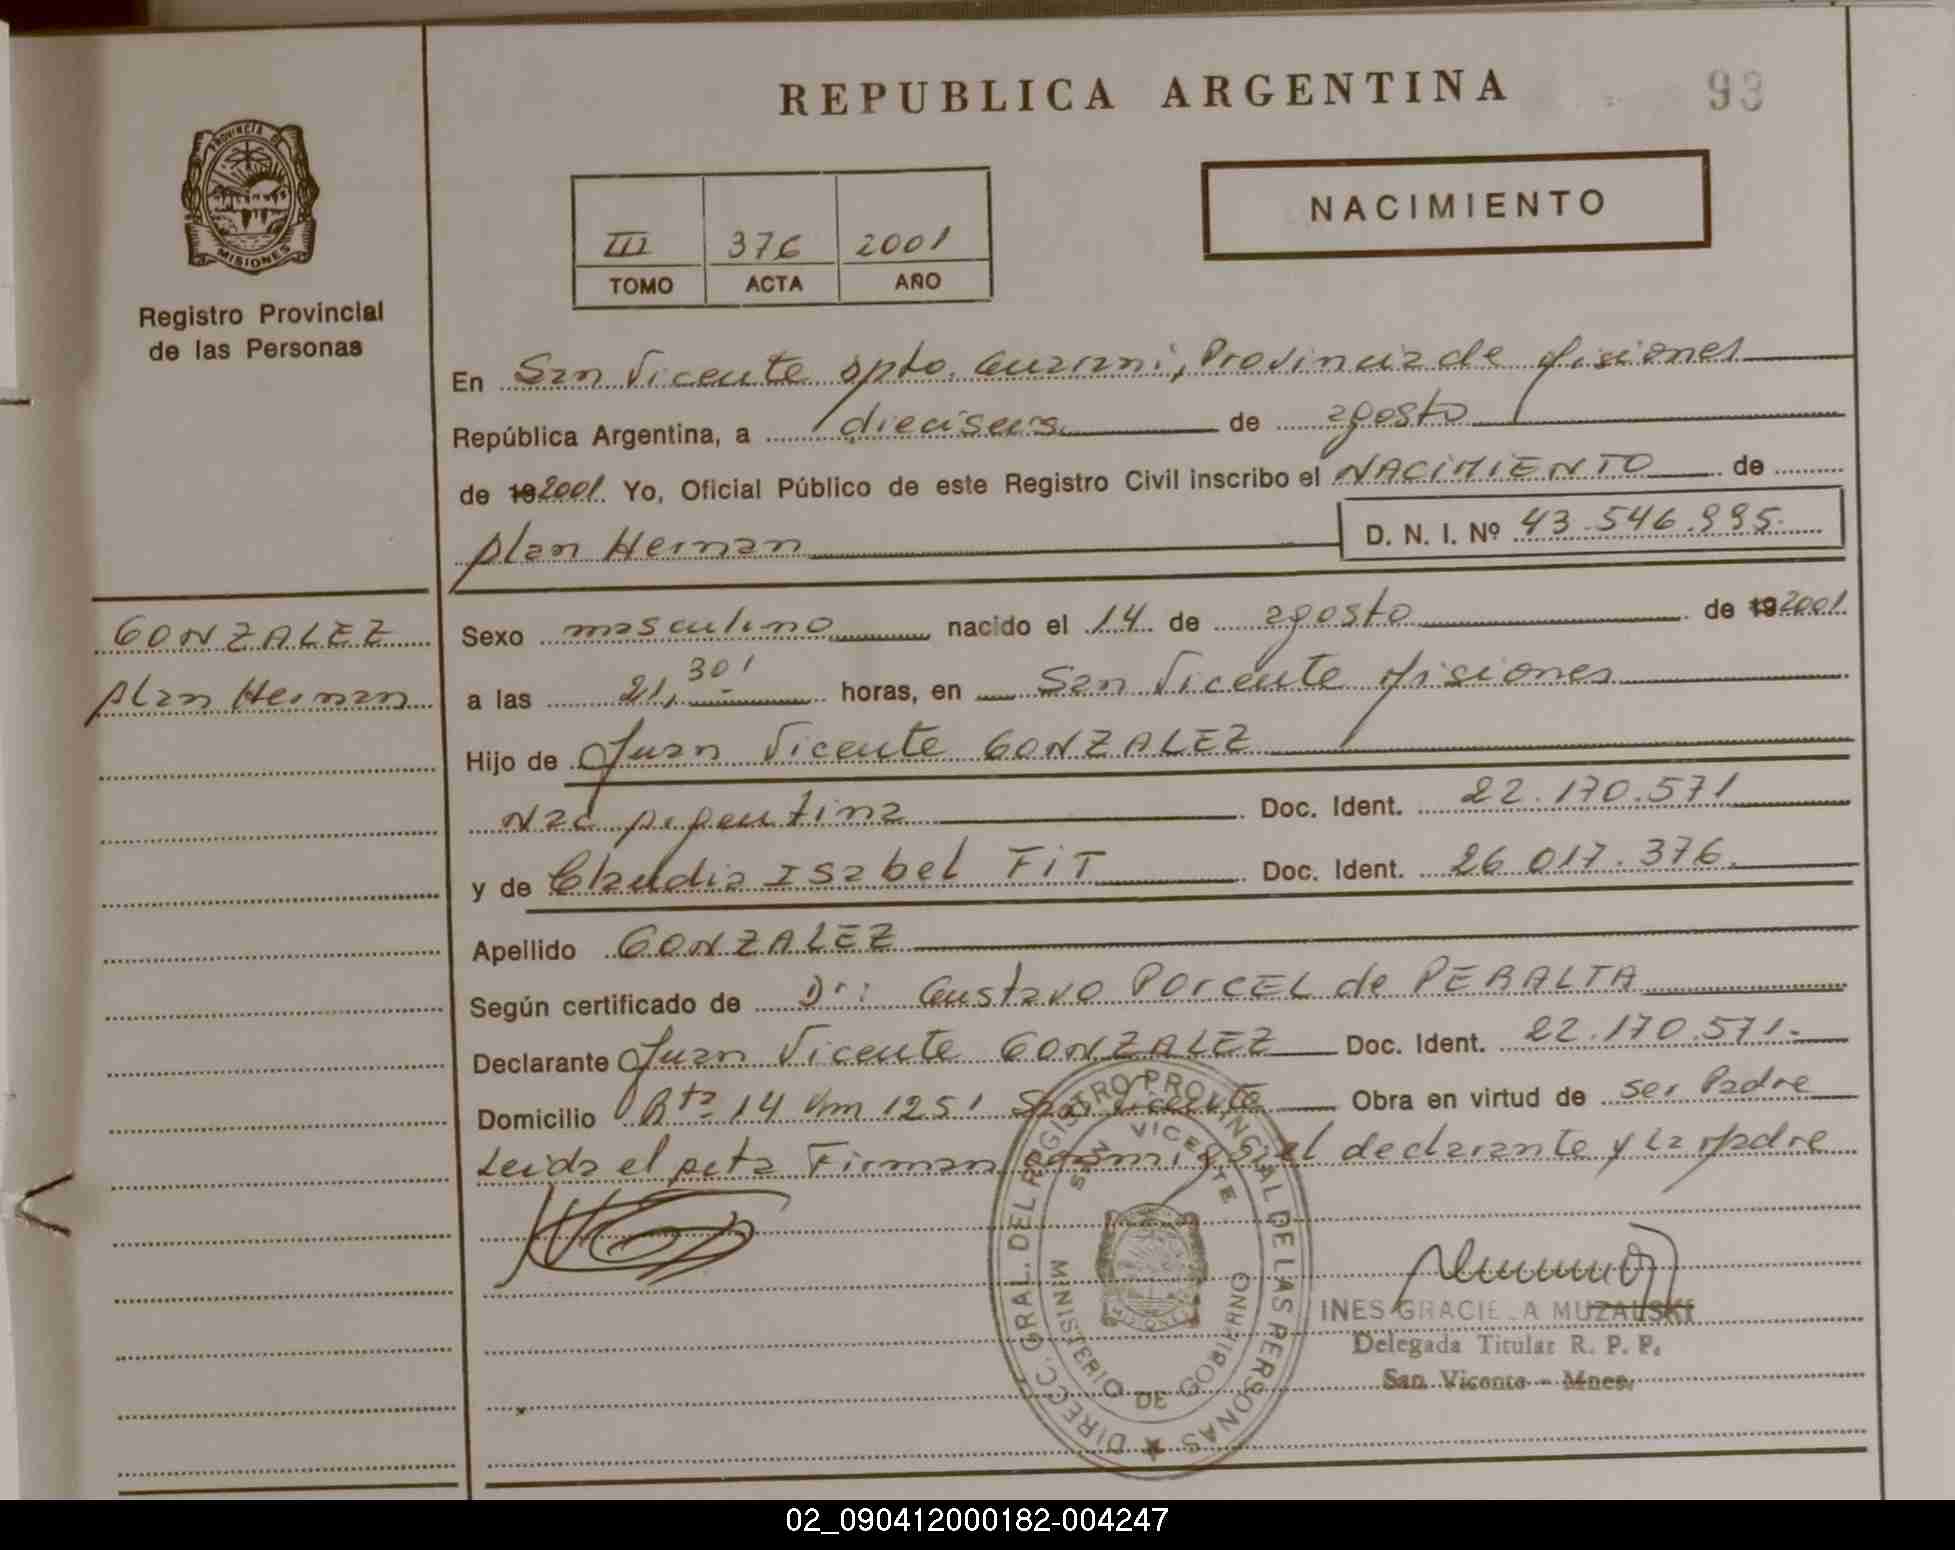 REPUBLICA ARGENTINA
93
PROVINCIA DE
MISIONES
Registro Provincial
de las Personas
III 376 2001
TOMO ACTA AÑO
NACIMIENTO
En San Vicente Dpto. Guarani, Provincia de Misiones
República Argentina, a dieciseis de agosto
de 19 2001. Yo, Oficial Público de este Registro Civil inscribo el NACIMIENTO de
Alan Hernan D. N. I. Nº 43.546.995.
GONZALEZ
Alan Hernan
Sexo masculino nacido el 14 de agosto de 19 2001.
a las 21,30' horas, en San Vicente Misiones
Hijo de Juan Vicente GONZALEZ
Nac Argentina Doc. Ident. 22.170.571
y de Claudia Isabel FIT Doc. Ident. 26.017.376.
Apellido GONZALEZ
Según certificado de Dr: Gustavo PORCEL de PERALTA
Declarante Juan Vicente GONZALEZ Doc. Ident. 22.170.571.-
Domicilio Rta 14 Km 1251 San Vicente Obra en virtud de ser Padre
Leida el Acta Firman conmigo el declarante y la Madre
DIRECC. GRAL. DEL REGISTRO PROVINCIAL DE LAS PERSONAS
SAN VICENTE
MISIONES
MINISTERIO DE GOBIERNO
INES GRACIELA MUZALSKI
Delegada Titular R. P. P.
San Vicente - Mnes.
02_090412000182-004247